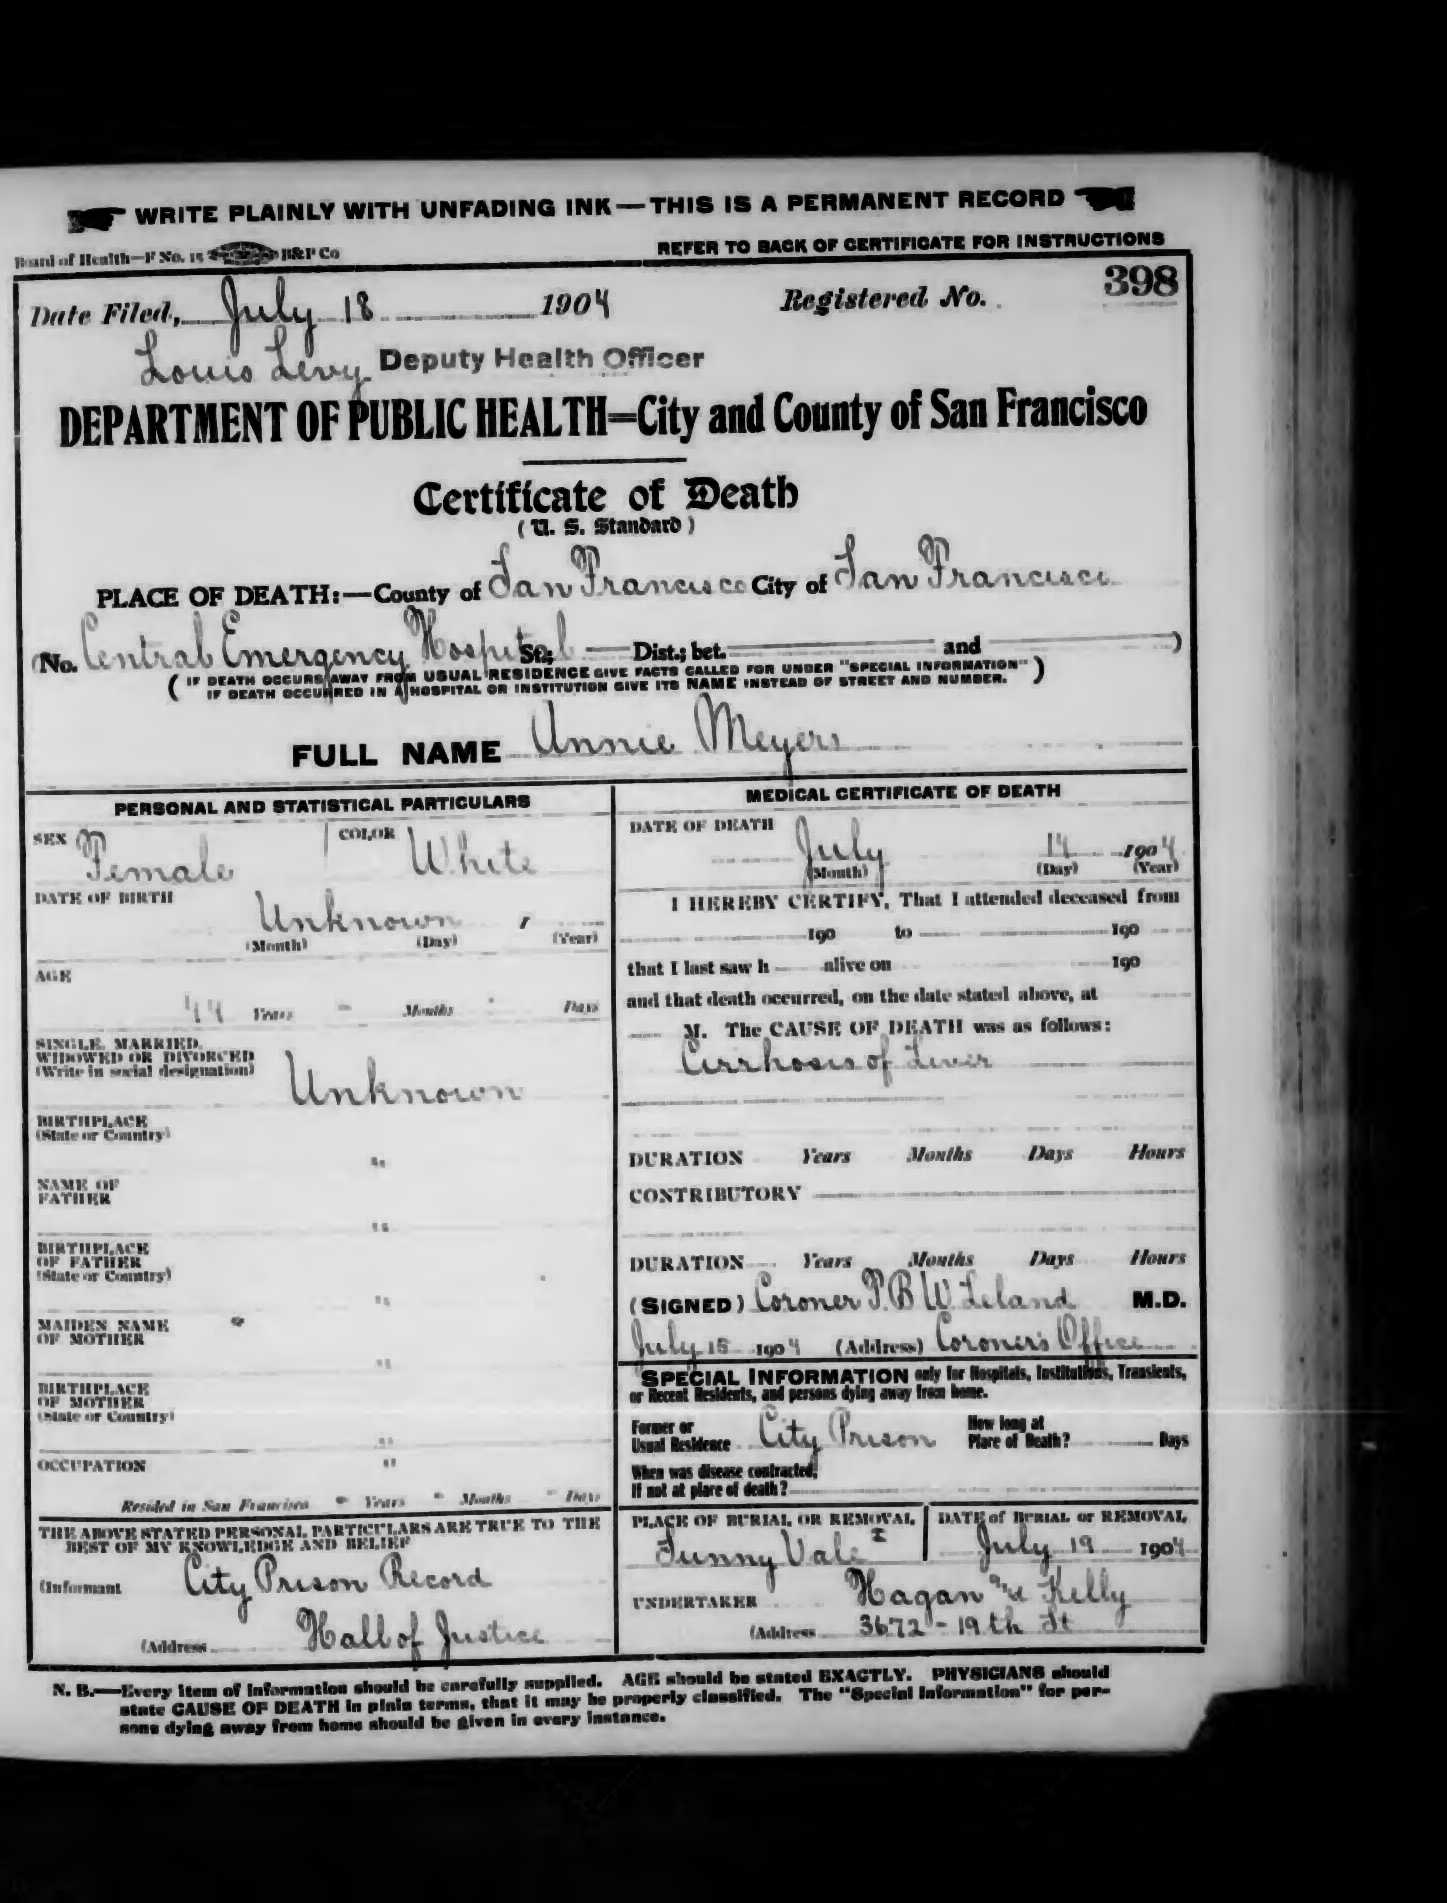 WRITE PLAINLY WITH UNFADING INK—THIS IS A PERMANENT RECORD
Board of Health—F No. 15 B&P Co
REFER TO BACK OF CERTIFICATE FOR INSTRUCTIONS
Date Filed, July 18 1904 Registered No. 398
Louis Levy Deputy Health Officer
DEPARTMENT OF PUBLIC HEALTH=City and County of San Francisco
Certificate of Death
(U. S. Standard)
PLACE OF DEATH:—County of San Francisco City of San Francisco
(No. Central Emergency Hospital St.; Dist.; bet. and )
(IF DEATH OCCURS AWAY FROM USUAL RESIDENCE GIVE FACTS CALLED FOR UNDER "SPECIAL INFORMATION"
IF DEATH OCCURRED IN A HOSPITAL OR INSTITUTION GIVE ITS NAME INSTEAD OF STREET AND NUMBER.)
FULL NAME Annie Meyers
PERSONAL AND STATISTICAL PARTICULARS
SEX Female COLOR White
DATE OF BIRTH
Unknown
(Month) (Day) (Year)
AGE
44 Years - Months - Days
SINGLE, MARRIED,
WIDOWED OR DIVORCED
(Write in social designation) Unknown
BIRTHPLACE
(State or Country)
"
NAME OF
FATHER
"
BIRTHPLACE
OF FATHER
(State or Country)
"
MAIDEN NAME
OF MOTHER
"
BIRTHPLACE
OF MOTHER
(State or Country)
"
OCCUPATION "
Resided in San Francisco - Years - Months - Days
THE ABOVE STATED PERSONAL PARTICULARS ARE TRUE TO THE
BEST OF MY KNOWLEDGE AND BELIEF
(Informant City Prison Record
(Address Hall of Justice
MEDICAL CERTIFICATE OF DEATH
DATE OF DEATH
July 14 1904
(Month) (Day) (Year)
I HEREBY CERTIFY, That I attended deceased from
190 to 190
that I last saw h alive on 190
and that death occurred, on the date stated above, at
M. The CAUSE OF DEATH was as follows:
Cirrhosis of Liver
DURATION Years Months Days Hours
CONTRIBUTORY
DURATION Years Months Days Hours
(SIGNED) Coroner T. B W. Leland M.D.
July 15 1904 (Address) Coroner's Office
SPECIAL INFORMATION only for Hospitals, Institutions, Transients,
or Recent Residents, and persons dying away from home.
Former or
Usual Residence City Prison
How long at
Place of Death? Days
When was disease contracted,
If not at place of death?
PLACE OF BURIAL OR REMOVAL
Sunny Vale
DATE of BURIAL or REMOVAL
July 19 1904
UNDERTAKER Hagan and Kelly
(Address 3672 - 19th St
N. B.—Every item of information should be carefully supplied. AGE should be stated EXACTLY. PHYSICIANS should
state CAUSE OF DEATH in plain terms, that it may be properly classified. The "Special Information" for per-
sons dying away from home should be given in every instance.